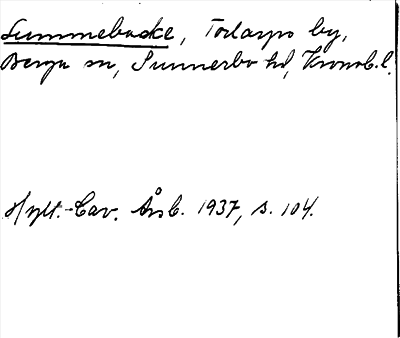 Lummebacke, Torlarps by,
Berga sn, Sunnerbo hd, Kronob. l.
Hylt.-Cav. Årsb. 1937, s. 104.